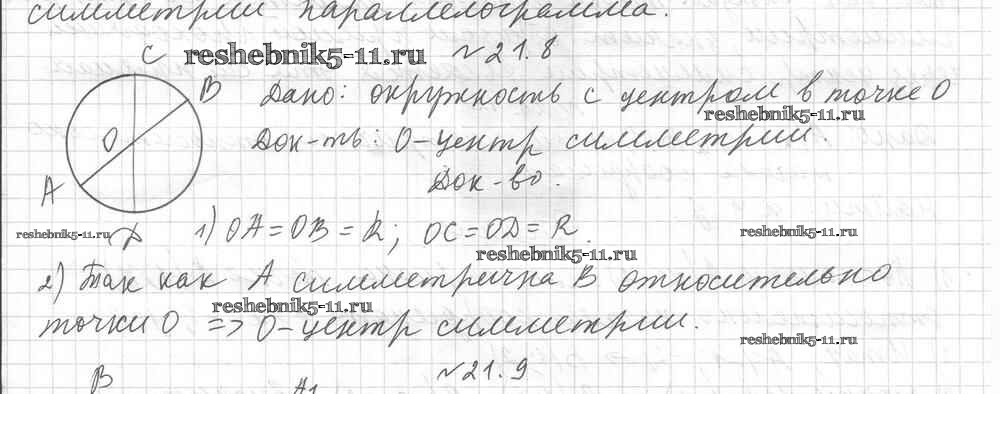 симметрии параллелограмма.
C reshebnik5-11.ru №21.8
B Дано: окружность с центром в точке O
reshebnik5-11.ru
O Док-ть: O-центр симметрии.
Док-во.
A
reshebnik5-11.ru 1) OA = OB = R; OC = OD = R. reshebnik5-11.ru
reshebnik5-11.ru
2) Так как A симметрична B относительно
reshebnik5-11.ru
точки O => O-центр симметрии.
reshebnik5-11.ru
№21.9
B A1